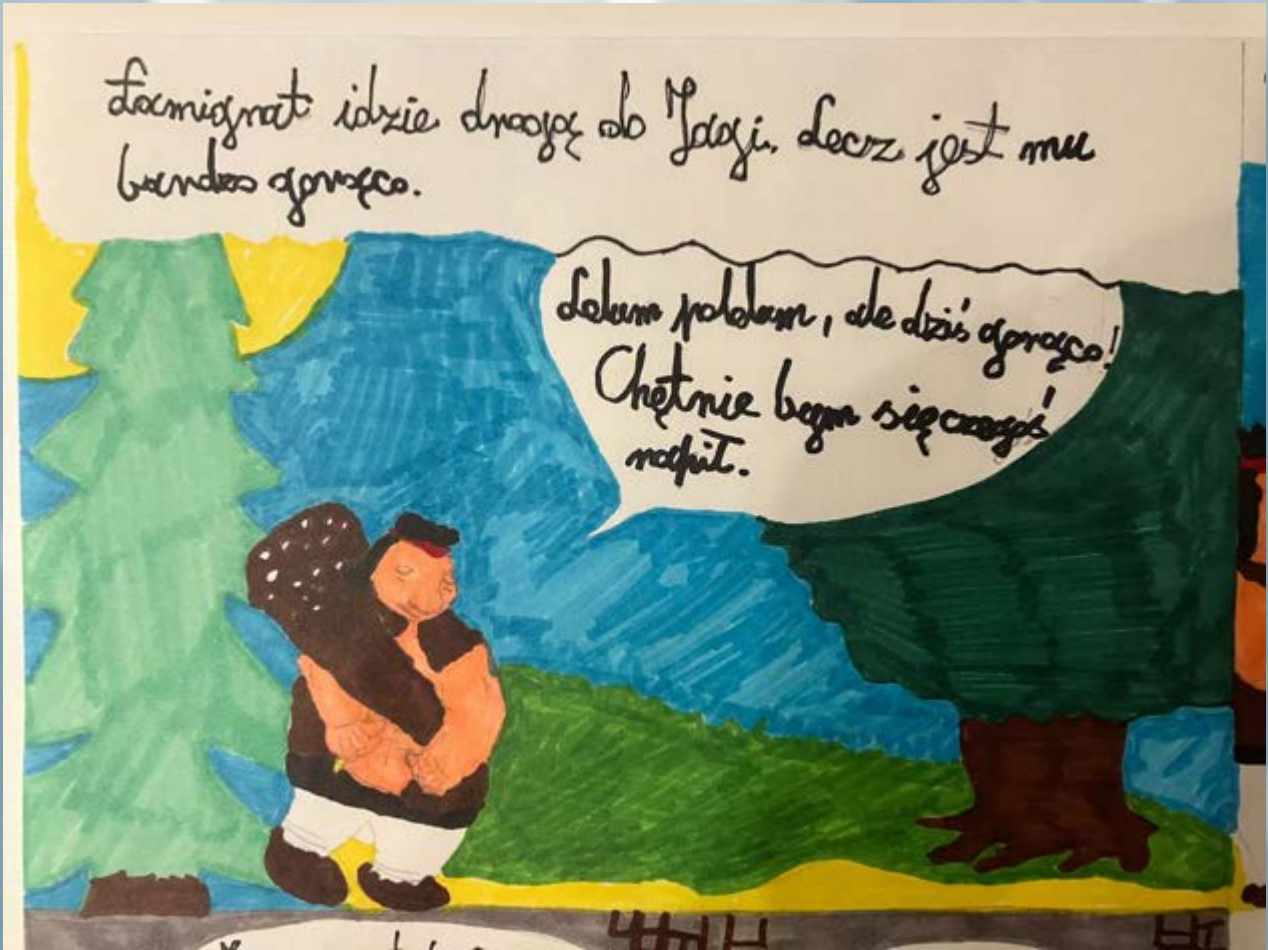 Łamignat idzie drogą do Jagi. Lecz jest mu
bardzo gorąco.
Lelum polelum, ale dziś gorąco!
Chętnie bym się czegoś
napił.